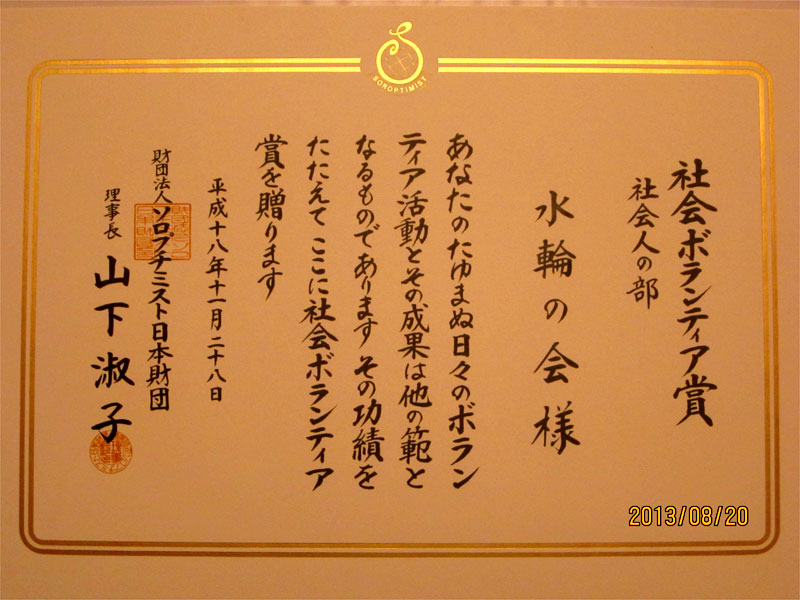 SOROPTIMIST
社会ボランティア賞
社会人の部
水輪の会様
あなたのたゆまぬ日々のボラン
ティア活動とその成果は他の範と
なるものであります その功績を
たたえて ここに社会ボランティア
賞を贈ります
平成十八年十一月二十八日
財団法人ソロプチミスト日本財団
理事長 山下淑子
2013/08/20